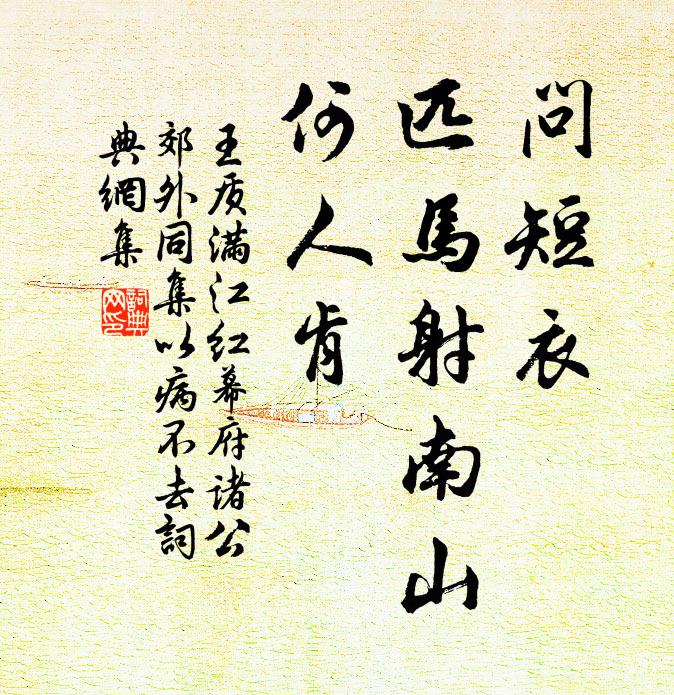 問短衣
匹馬射南山
何人肯
王质满江红幕府诸公
郊外同集以病不去詞
典網集
詞典
网印